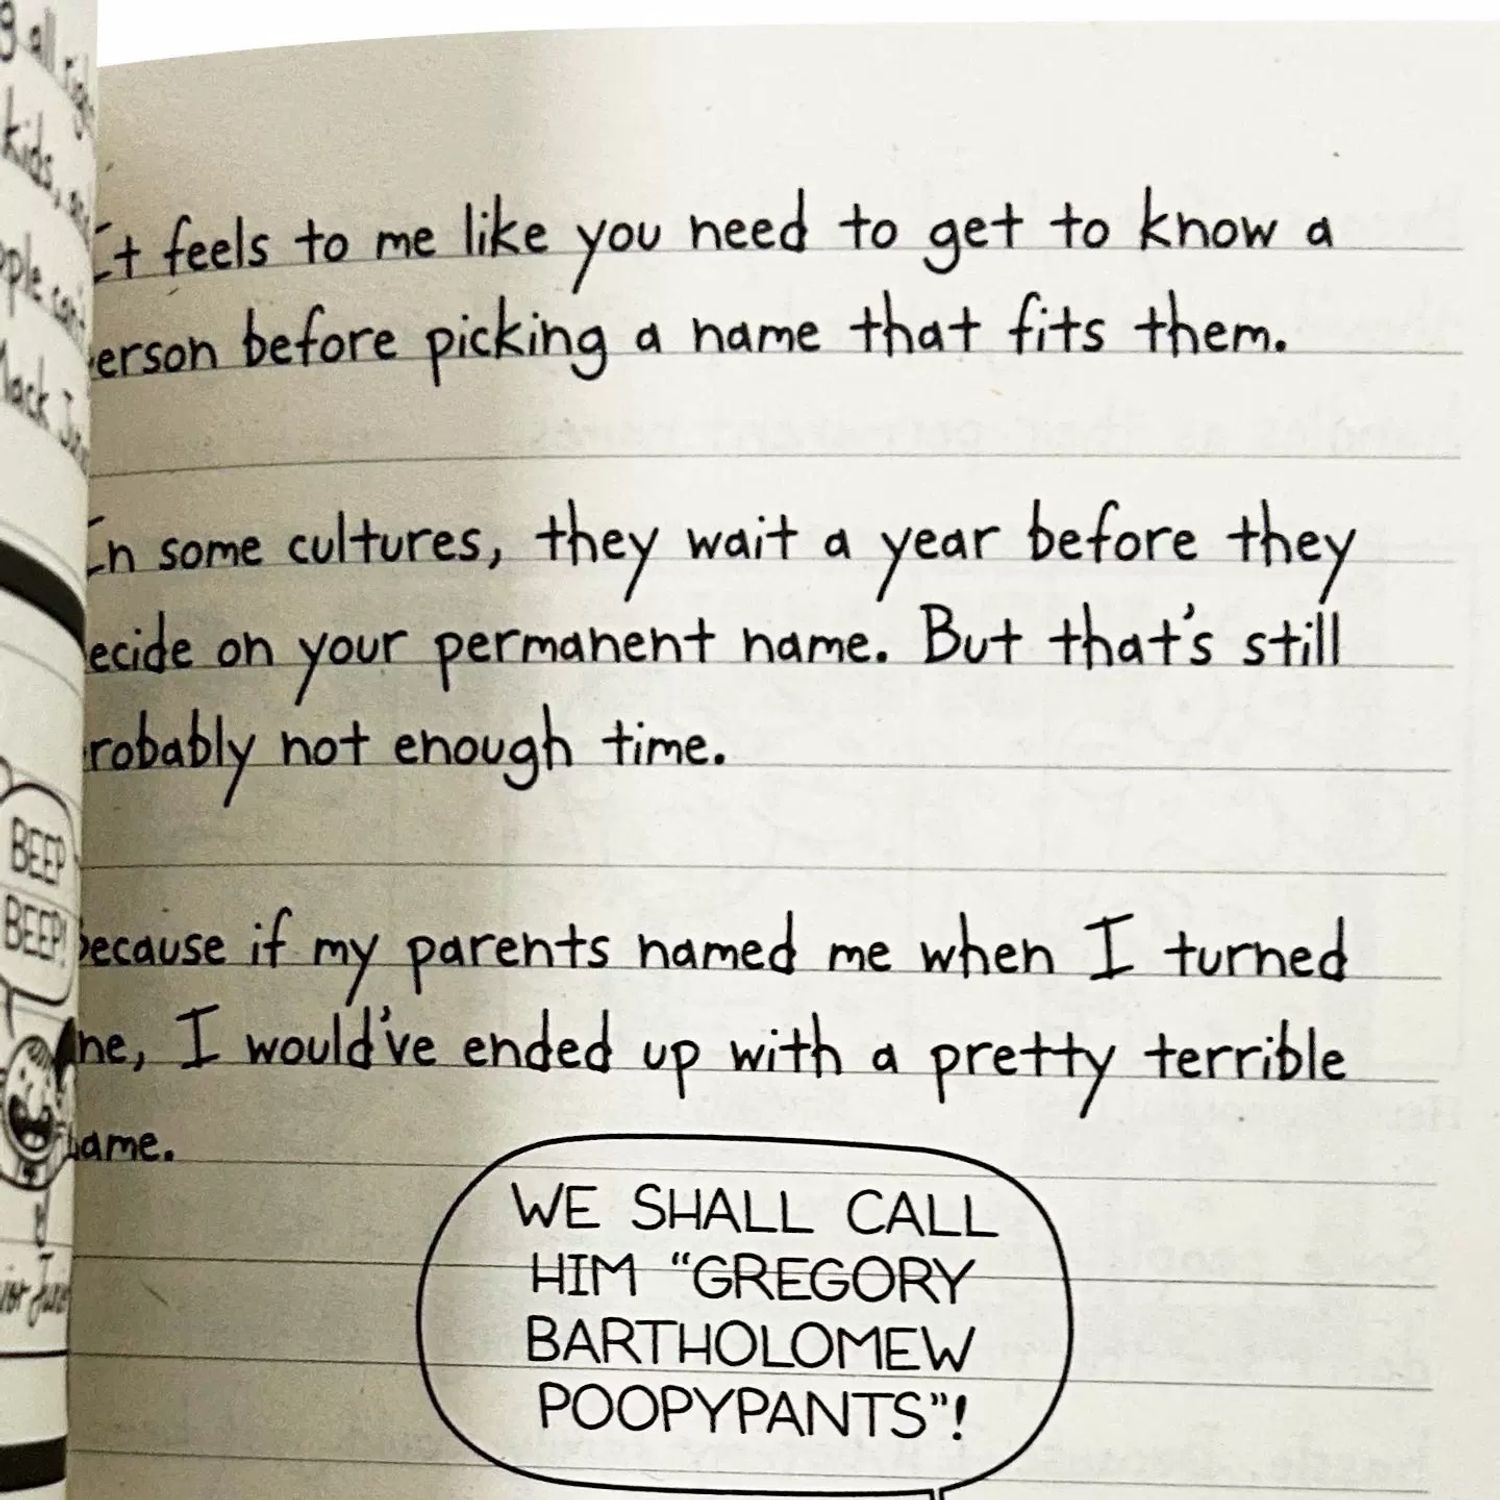 g all
kids,
BEEP
BEEP!
It feels to me like you need to get to know a
erson before picking a name that fits them.
In some cultures, they wait a year before they
ecide on your permanent name. But that's still
robably not enough time.
Because if my parents named me when I turned
ne, I would've ended up with a pretty terrible
name.
WE SHALL CALL
HIM “GREGORY
BARTHOLOMEW
POOPYPANTS”!